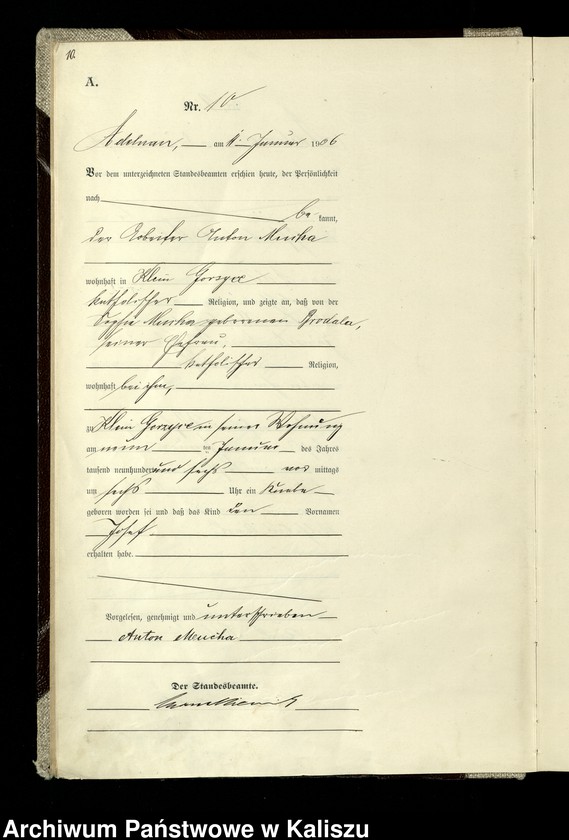 10.
A.
Nr. 10.
Adelnau, am 11. Januar 1906
Vor dem unterzeichneten Standesbeamten erschien heute, der Persönlichkeit
nach
be kannt,
der Arbeiter Anton Mucha
wohnhaft in Klein Gorzyce
katholischer Religion, und zeigte an, daß von der
Mucha geborenen
seiner Ehefrau,
katholischer Religion,
wohnhaft bei ihm,
zu Klein Gorzyce in seiner Wohnung
am neun ten Januar des Jahres
tausend neunhundert und sechs vor mittags
um sechs Uhr ein Knabe
geboren worden sei und daß das Kind den Vornamen
Josef
erhalten habe.
Vorgelesen, genehmigt und unterschrieben
Anton Mucha
Der Standesbeamte.
Archiwum Państwowe w Kaliszu